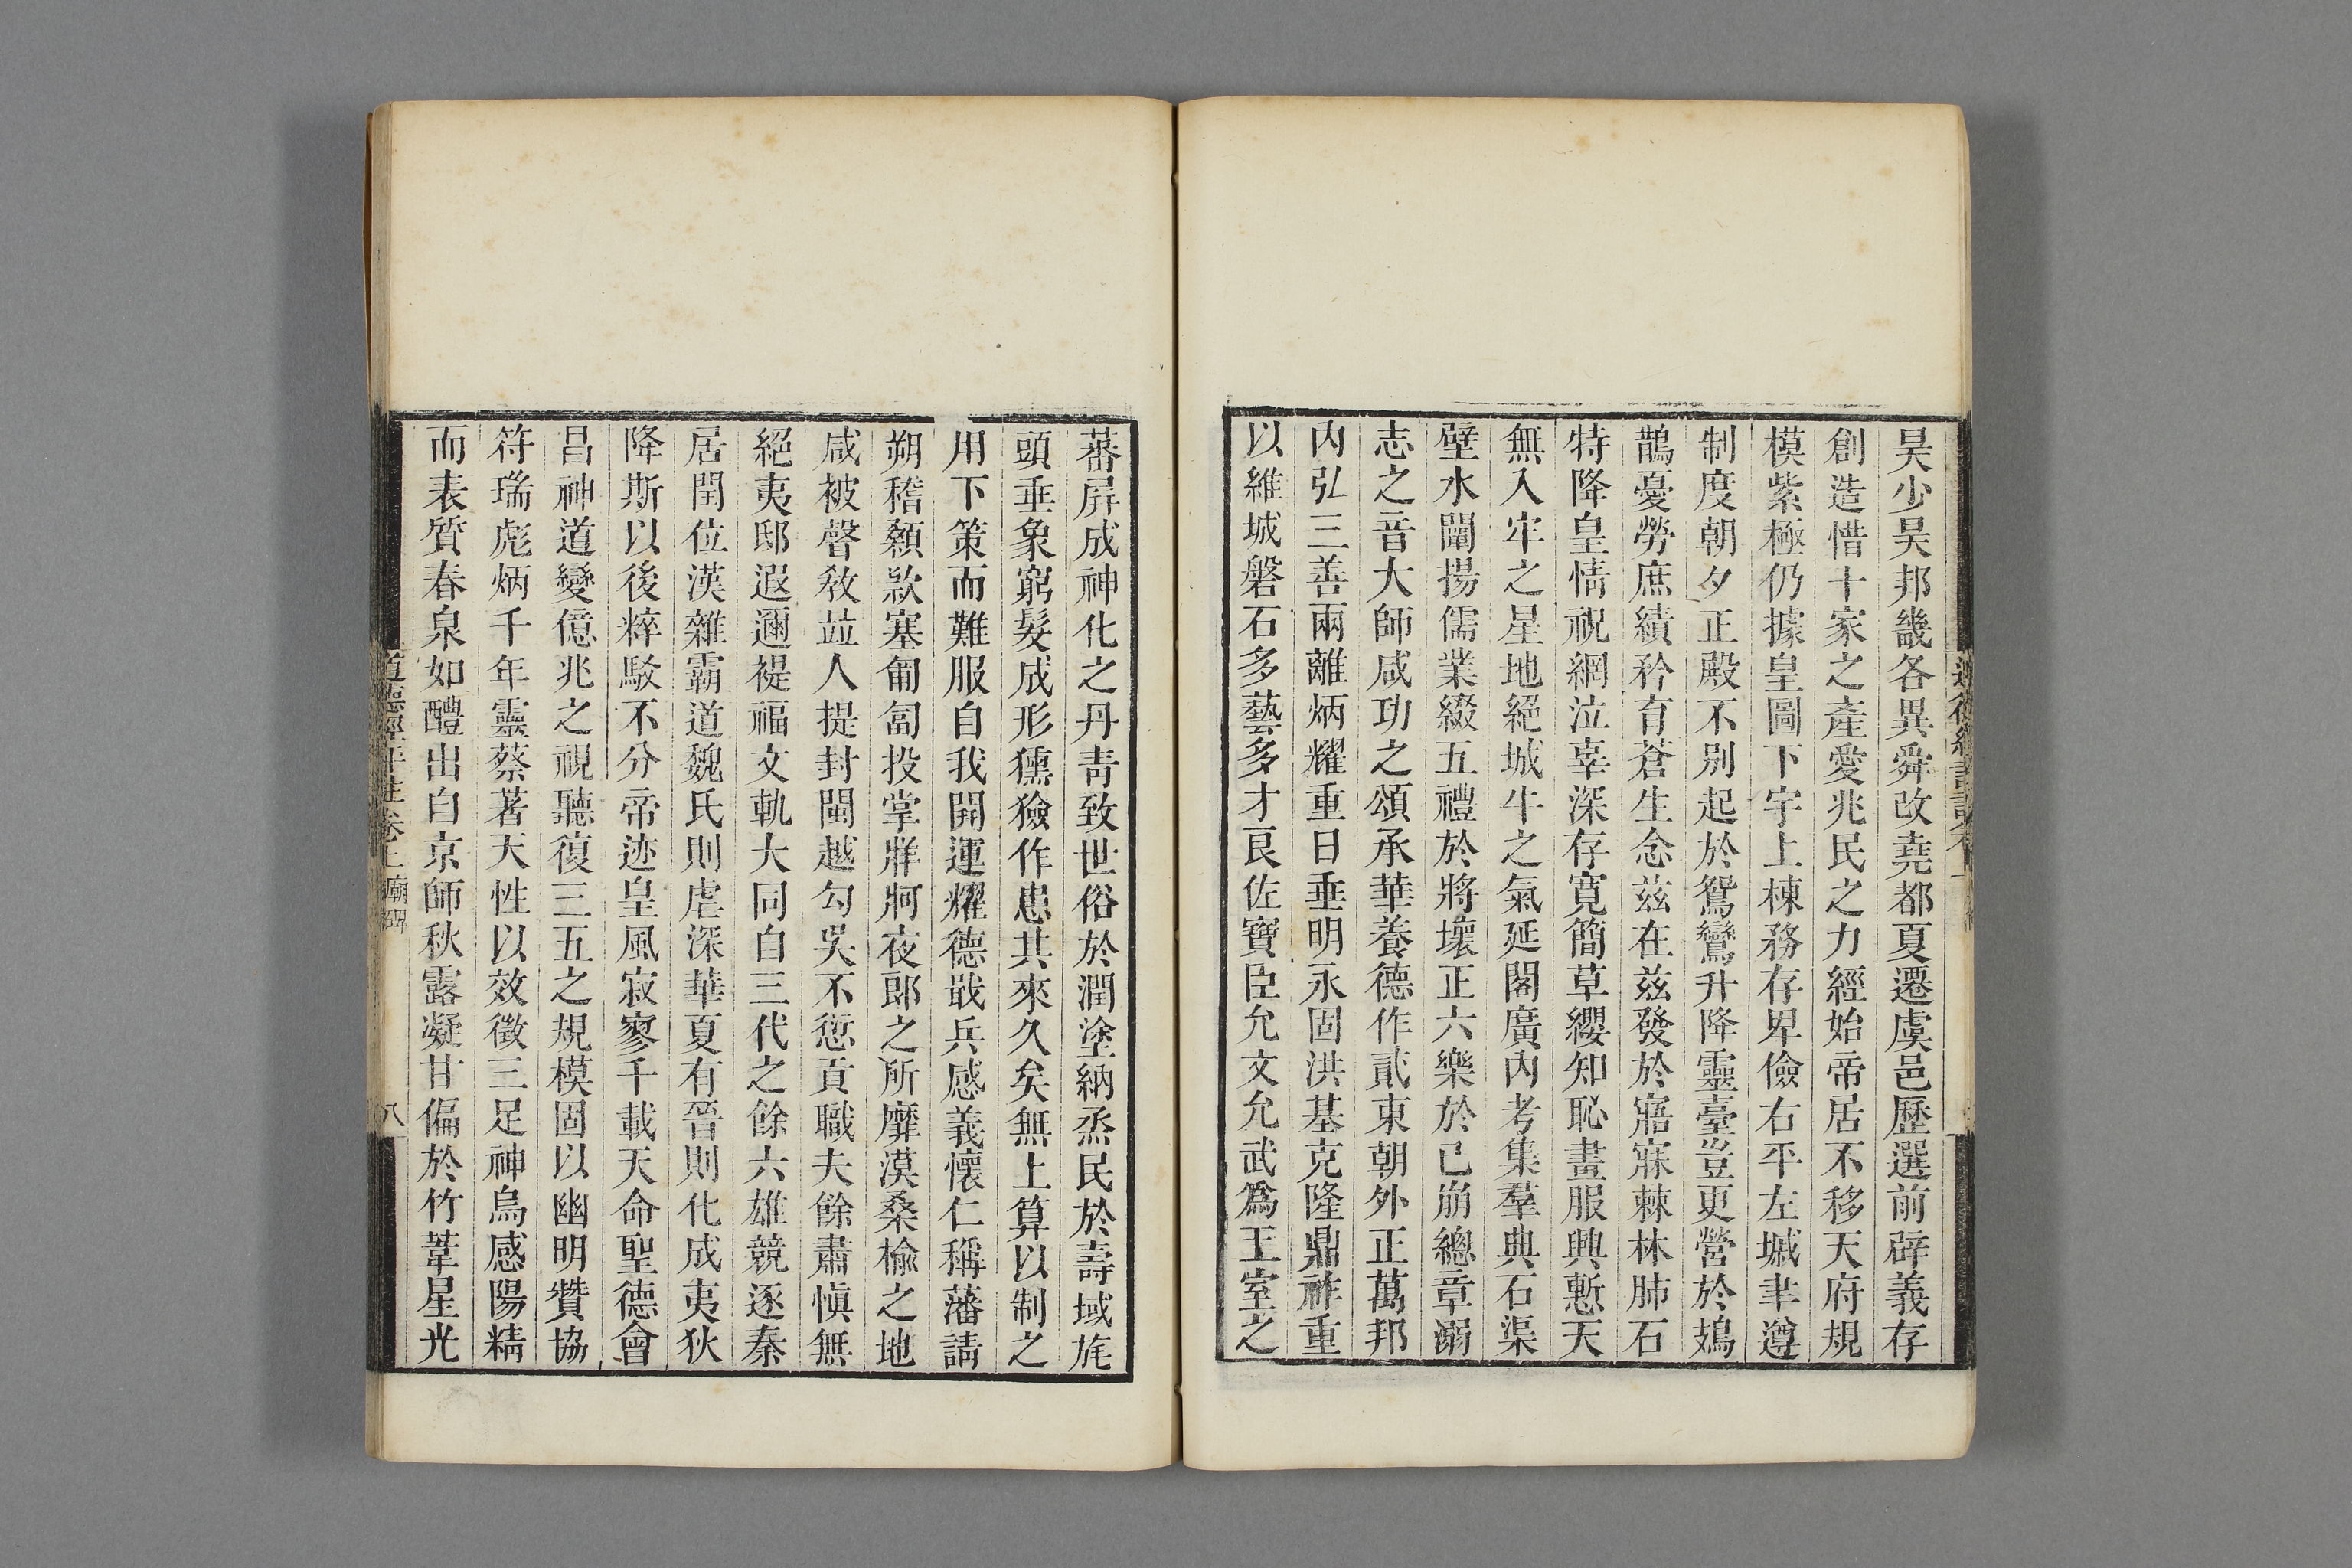 昊少昊邦畿各異舜改堯都夏遷虞邑歷選前辟義存
創造惜十家之產愛兆民之力經始帝居不移天府規
模紫極仍據皇圖下宇上棟務存卑儉右平左墄聿遵
制度朝夕正殿不别起於鴛鸞升降靈臺豈更營於鳷
鵲憂勞庶績矜育蒼生念茲在茲發於寤寐棘林肺石
特降皇情祝網泣辜深存寛簡草纓知恥畫服興慙天
無入牢之星地絕城牛之氣延閣廣內考集羣典石渠
壁水闡揚儒業綴五禮於將壞正六樂於已崩總章溺
志之音大師咸功之頌承華養德作貳東朝外正萬邦
內弘三善兩離炳耀重日垂明永固洪基克隆鼎祚重
以維城磐石多藝多才良佐寶臣允文允武爲王室之
蕃屏成神化之丹靑致世俗於潤塗納烝民於壽域旄
頭垂象窮髮成形獯獫作患其來久矣無上算以制之
用下策而難服自我開運耀德戢兵感義懷仁稱藩請
朔稽顙款塞匍匐投掌牂牁夜郎之所靡漠桑榆之地
咸被聲敎竝人提封閩越勾吳不愆貢職夫餘肅愼無
絕夷邸遐邇禔福文軌大同自三代之餘六雄競逐秦
居閏位漢雜霸道魏氏則虐深華夏有晉則化成夷狄
降斯以後粹駮不分帝迹皇風寂寥千載天命聖德會
昌神道變億兆之視聽復三五之規模固以幽明贊協
符瑞彪炳千年靈蔡著天性以效徵三足神烏感陽精
而表質春泉如醴出自京師秋露凝甘偏於竹葦星光
道德經評註卷上 廟碑
八